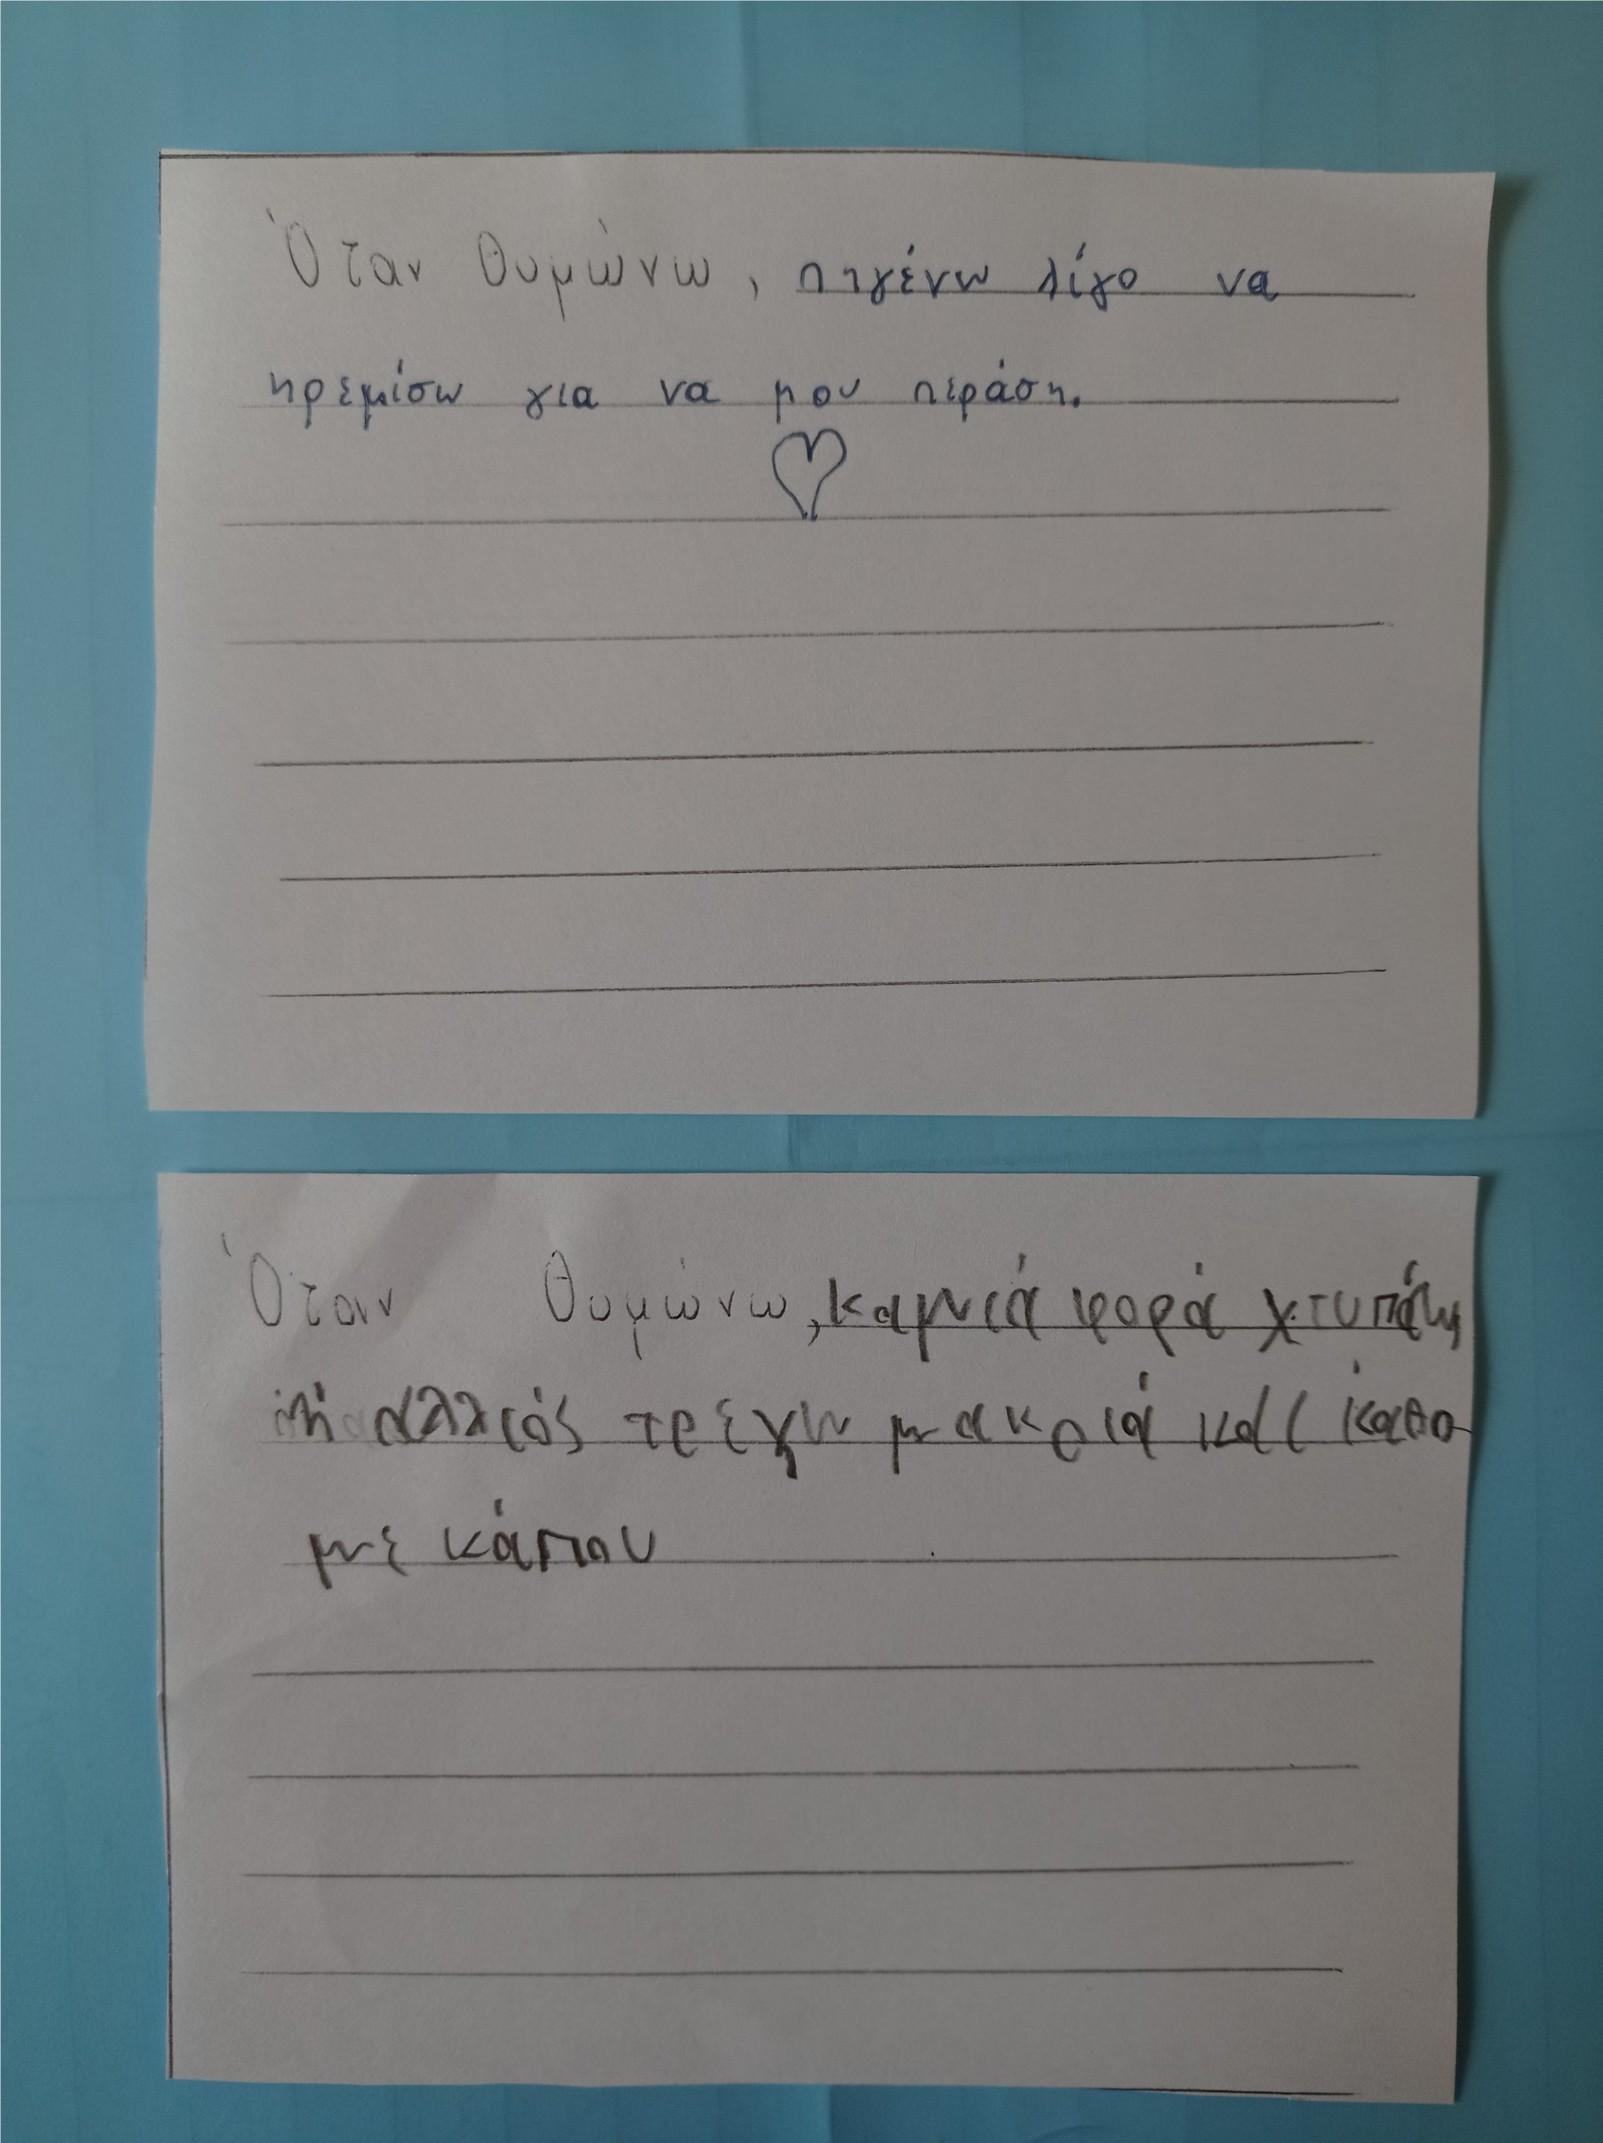 Όταν θυμώνω, πηγένω λίγο να
ηρεμίσω για να μου περάση.
Όταν θυμώνω, καμιά φορά χτυπάω
ή αλλιός τρέχω μακριά και κατσο
με κάπου